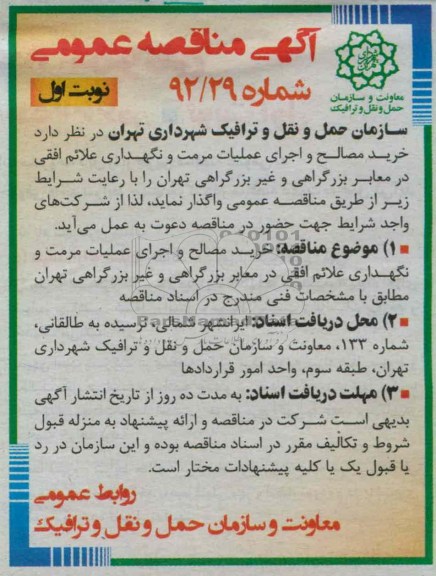 آگهی مناقصه عمومی
شماره ۹۲/۲۹
نوبت اول
معاونت و سازمان
حمل و نقل و ترافیک
سازمان حمل و نقل و ترافیک شهرداری تهران در نظر دارد
خرید مصالح و اجرای عملیات مرمت و نگهداری علائم افقی
در معابر بزرگراهی و غیر بزرگراهی تهران را با رعایت شرایط
زیر از طریق مناقصه عمومی واگذار نماید، لذا از شرکت‌های
واجد شرایط جهت حضور در مناقصه دعوت به عمل می‌آید.
۱) موضوع مناقصه: خرید مصالح و اجرای عملیات مرمت و
نگهداری علائم افقی در معابر بزرگراهی و غیر بزرگراهی تهران
مطابق با مشخصات فنی مندرج در اسناد مناقصه
۲) محل دریافت اسناد: ایرانشهر شمالی، نرسیده به طالقانی،
شماره ۱۳۳، معاونت و سازمان حمل و نقل و ترافیک شهرداری
تهران، طبقه سوم، واحد امور قراردادها
۳) مهلت دریافت اسناد: به مدت ده روز از تاریخ انتشار آگهی
بدیهی است شرکت در مناقصه و ارائه پیشنهاد به منزله قبول
شروط و تکالیف مقرر در اسناد مناقصه بوده و این سازمان در رد
یا قبول یک یا کلیه پیشنهادات مختار است.
روابط عمومی
معاونت و سازمان حمل و نقل و ترافیک